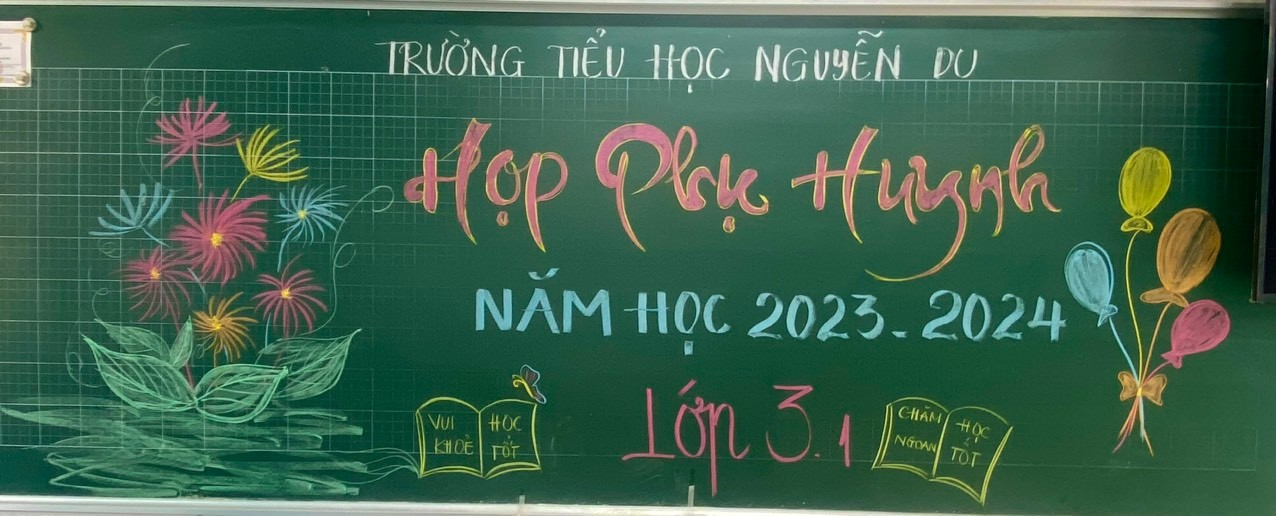 TRƯỜNG TIỂU HỌC NGUYỄN DU
Họp Phụ Huynh
NĂM HỌC 2023-2024
Lớp 3.1
VUI KHOẺ
HỌC TỐT
CHĂM NGOAN
HỌC TỐT